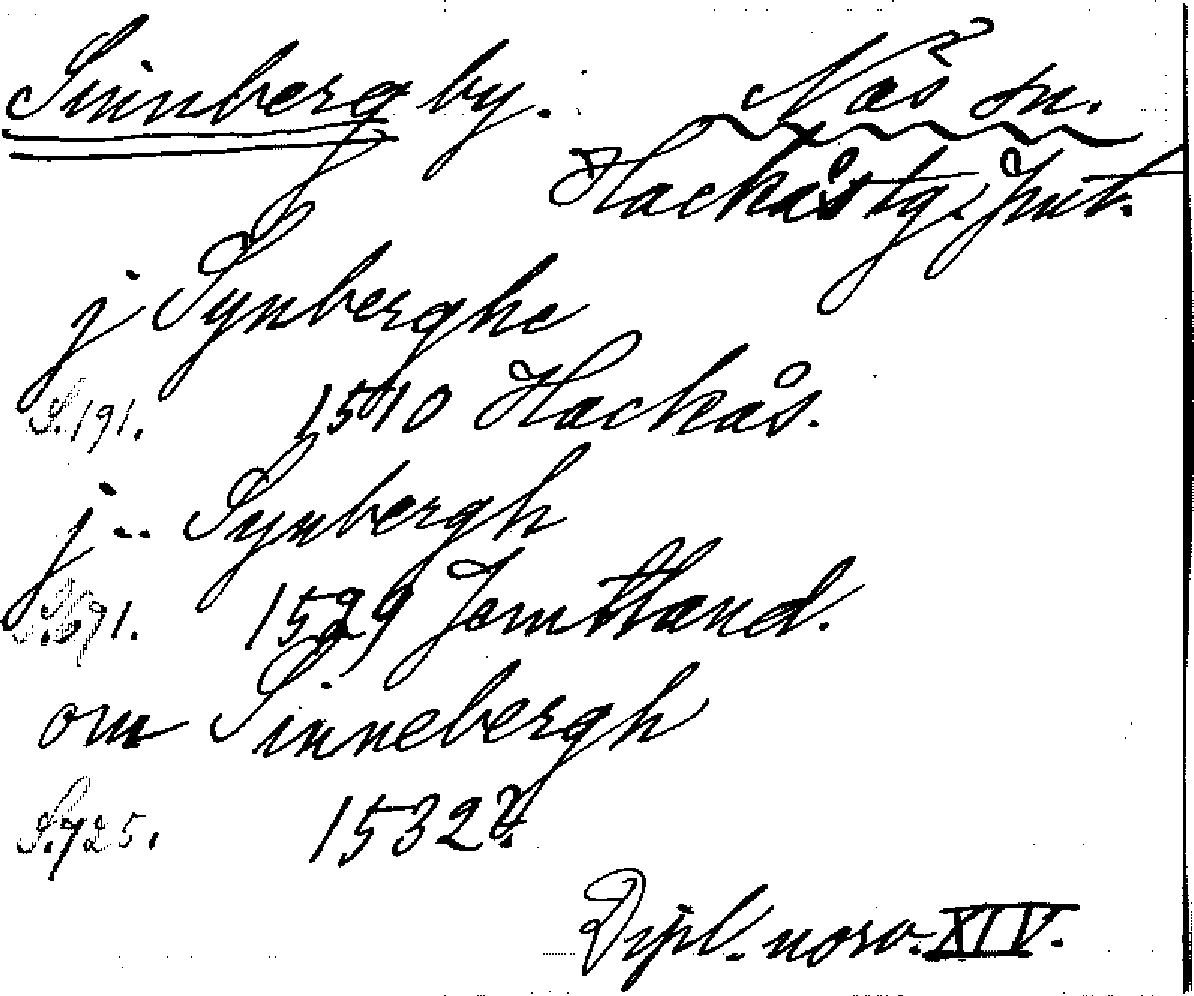 Sinnberg by. Näs sn.
Hackås tg. Jmt.
j Synberghe
S. 191. 1510 Hackås.
j -- Synbergh
S. 691. 1529 Jemtland.
om Sinnebergh
S. 725. 1532?.
Dipl. norv. XIV.